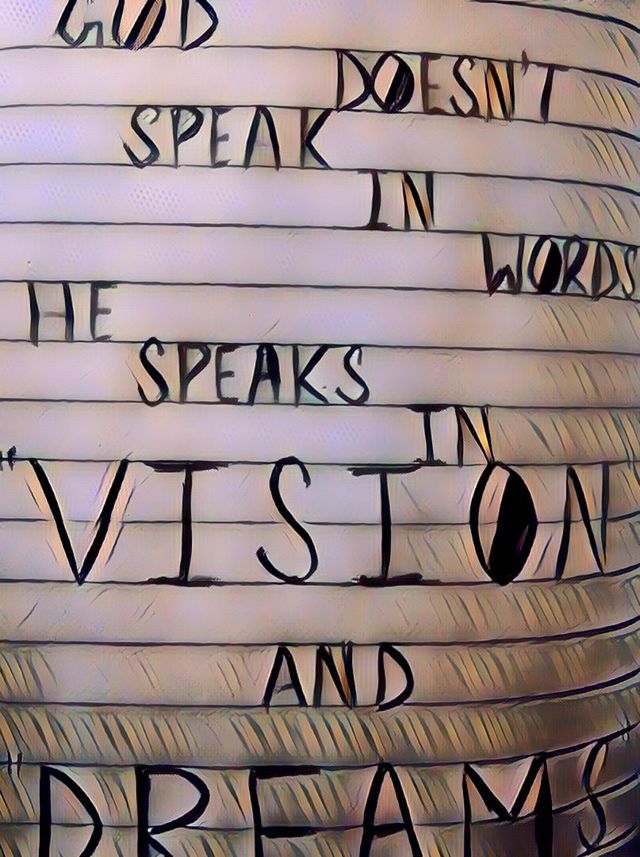 GOD
DOESN'T
SPEAK
IN
WORDS
HE
SPEAKS
IN
"VISION
AND
"DREAMS"